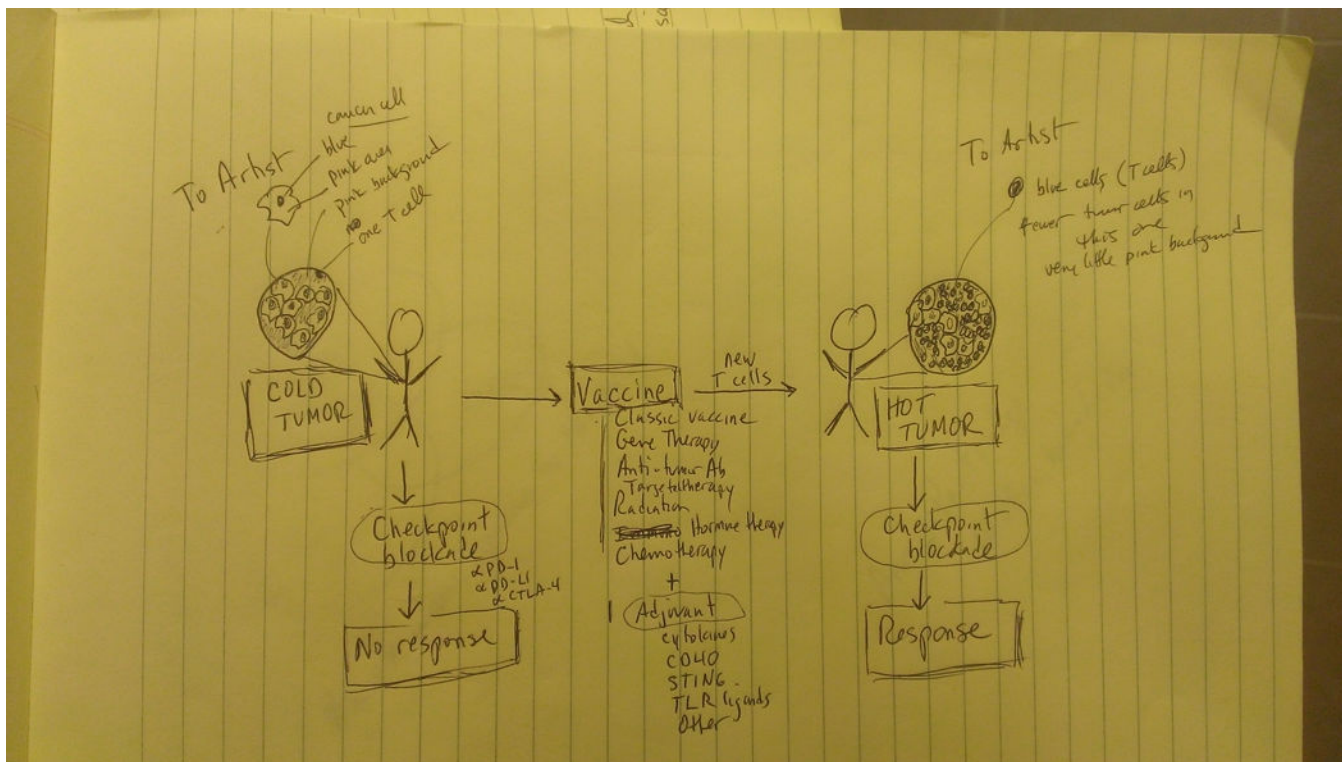 To Artist
cancer cell
blue
pink area
pink background
one T cell
COLD
TUMOR
Checkpoint
blockade
αPD-1
αPD-L1
αCTLA-4
No response
Vaccine
Classic vaccine
Gene Therapy
Anti-tumor Ab
Targeted therapy
Radiation
Hormone therapy
Chemotherapy
+
Adjuvant
cytokines
CD40
STING
TLR ligands
Other
new
T cells
To Artist
blue cells (T cells)
fewer tumor cells in
this one
very little pink background
HOT
TUMOR
Checkpoint
blockade
Response